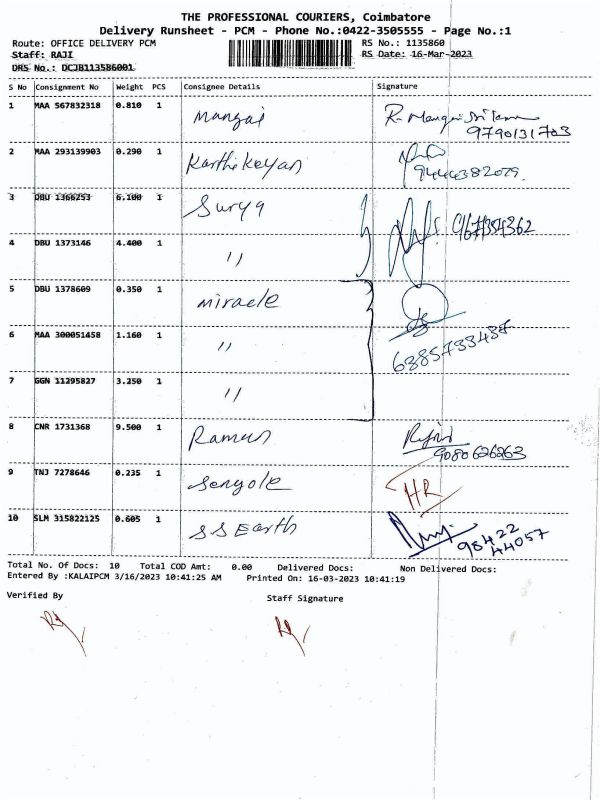 THE PROFESSIONAL COURIERS, Coimbatore
Delivery Runsheet - PCM - Phone No.:0422-3505555 - Page No.:1
Route: OFFICE DELIVERY PCM RS No.: 1135860
Staff: RAJI RS Date: 16-Mar-2023
DRS No.: DCJB113586001
S No Consignment No Weight PCS Consignee Details Signature
1 MAA 567832318 0.810 1 Mangai R. 9790131703
2 MAA 293139903 0.290 1 Karthikeyan 9444382079.
3 DBU 1366253 6.100 1 Surya
4 DBU 1373146 4.400 1 〃
5 DBU 1378609 0.350 1 miracle
6 MAA 300051458 1.160 1 〃 6385733437
7 GGN 11295827 3.250 1 〃
8 CNR 1731368 9.500 1 9080626263
9 TNJ 7278646 0.235 1 HR
10 SLM 315822125 0.605 1 S S Earth 98422 44057
Total No. Of Docs: 10 Total COD Amt: 0.00 Delivered Docs: Non Delivered Docs:
Entered By :KALAIPCM 3/16/2023 10:41:25 AM Printed On: 16-03-2023 10:41:19
Verified By Staff Signature